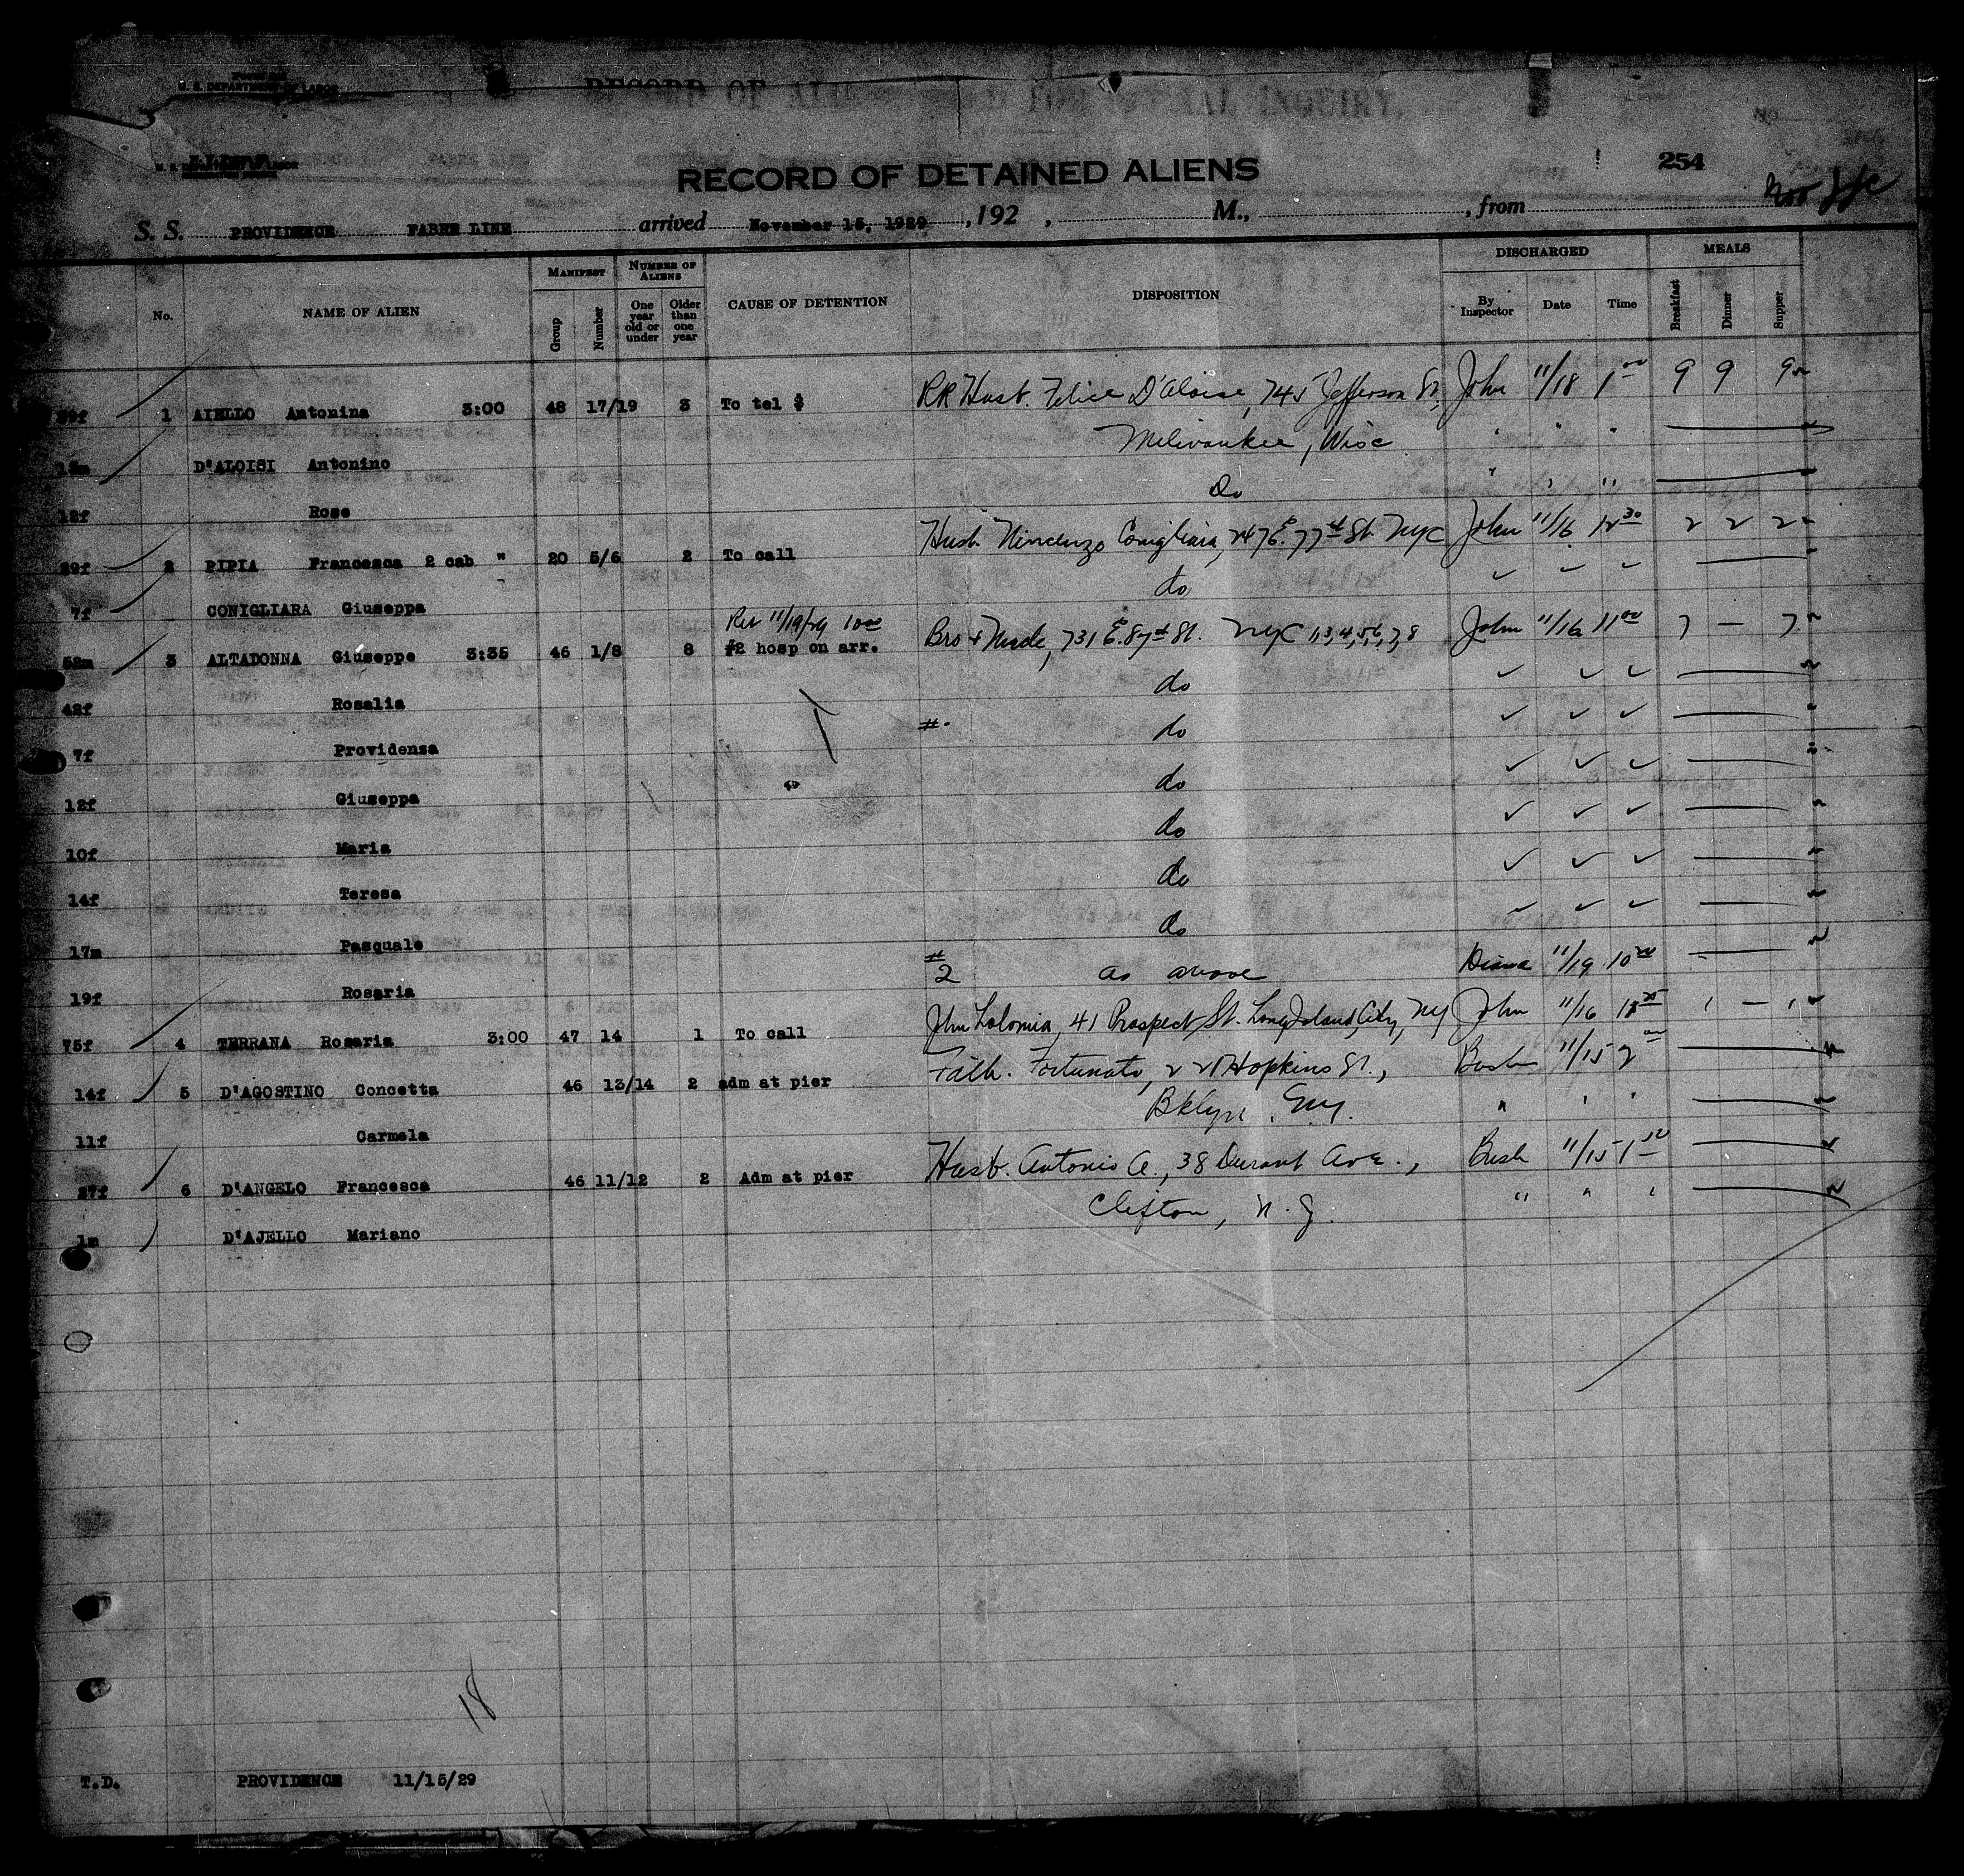 U. S. DEPARTMENT OF LABOR
RECORD OF DETAINED ALIENS
254
S. S. PROVIDENCE FABER LINE arrived November 15, 1929, 192 , M., , from
No. NAME OF ALIEN MANIFEST Group Number NUMBER OF ALIENS One year old or under Older than one year CAUSE OF DETENTION DISPOSITION DISCHARGED By Inspector Date Time MEALS Breakfast Dinner Supper
1 AIELLO Antonina 3:00 48 17/19 3 To tel $ RR Husb. Felice D'Aloise, 745 Jefferson St, John 11/18 1 00 9 9 9
D'ALOISI Antonino Milwaukee, Wisc " " "
12f Rose Do " " "
29f 2 PIPIA Francesca 2 cab " 20 5/6 2 To call Husb. Vincenzo Conigliara, 247 E. 77th St. NYC John 11/16 12 30 2 2 2
7f CONIGLIARA Giuseppa do ✓ ✓ ✓
Rev 11/19/29 10 00
52m 3 ALTADONNA Giuseppe 3:35 46 1/8 8 #2 hosp on arr. Bro & 731 E. 87th St. NYC 1,3,4,5,6,7,8 John 11/16 11 00 7 — 7
42f Rosalia do ✓ ✓ ✓
7f Providensa # do ✓ ✓ ✓
12f Giuseppa do ✓ ✓ ✓
10f Maria do ✓ ✓ ✓
14f Teresa do ✓ ✓ ✓
17m Pasquale do ✓ ✓ ✓
19f Rosaria #2 as above Diana 11/19 10 20
75f 4 TERRANA Rosaria 3:00 47 14 1 To call Jhn Lolomia, 41 Prospect St. Long Island City, NY John 11/16 1 — 1
14f 5 D'AGOSTINO Concetta 46 13/14 2 adm at pier Fath. Fortunato, 221 Hopkins St., Bush 11/15 2 00
11f Carmela Bklyn, NY. " " "
27f 6 D'ANGELO Francesca 46 11/12 2 Adm at pier Husb. Antonio A., 38 Durant Ave., Bush 11/15 1 50
1m D'AJELLO Mariano Clifton, N.J. " " "
18
T.D. PROVIDENCE 11/15/29